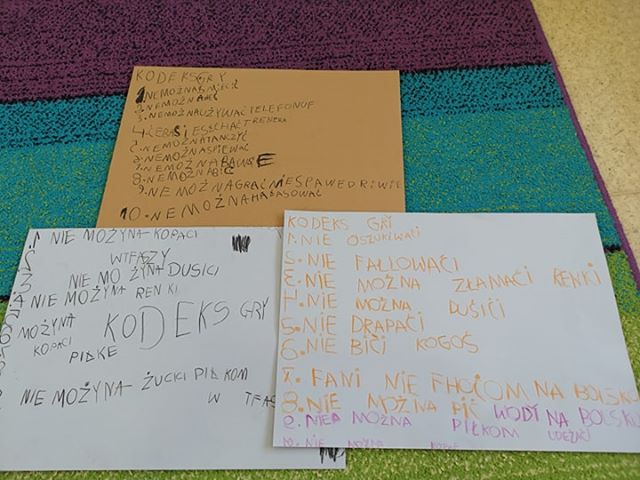 KODEKS GRY
1. NEMOŻNA
2. NEMOŻNA
3. NEMOŻNAUŻYWAĆTELEFONUF
4.
5. NEMOŻNATAŃCZYĆ
6. NEMOŻNAŚPIEWAĆ
7. NEMOŻNA
8. NEMOŻNABIĆ
9. NEMOŻNAGRAĆNIESPAWEDRIWIE
10. NEMOŻNAHAŁASOWAĆ
1. NIE MOŻYNA KOPACI
WTFAZY
NIE MOŻYNA DUSICI
NIE MOŻYNA RENKI
MOŻYNA
KOPACI
PIŁKE
KODEKS GRY
NIE MOŻYNA ŻUCKI PIŁKOM
W TFAS
KODEKS GRY
1. NIE OSZUKIWAĆI
2. NIE FALLOWAĆI
3. NIE MOŻNA ZŁAMAĆI RENKI
4. NIE MOŻNA DUŚIĆI
5. NIE DRAPAĆI
6. NIE BIĆI KOGOŚ
7. FANI NIE FHOĆOM NA BOLSKO
8. NIE MOŻNA PIĆ WODY NA BOLSKU
9. NIEA MOŻNA PIŁKOM UDEŻAĆI
10. NIE MOŻNA